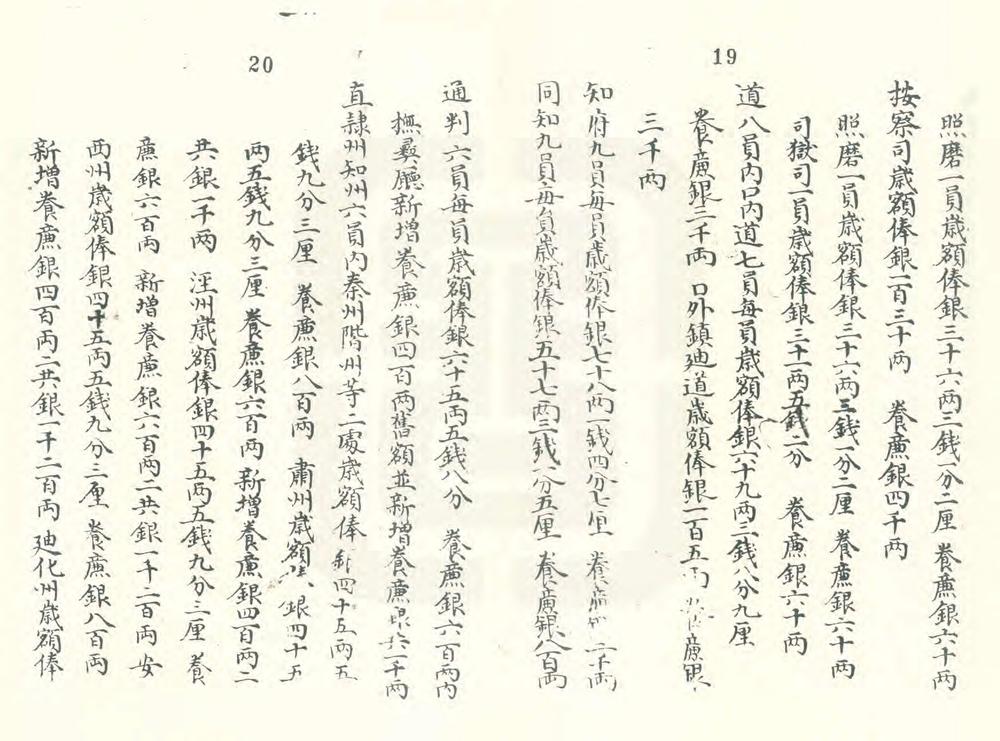 19
照磨一員歲額俸銀三十六两三錢一分二厘 養廉銀六十两
按察司歲額俸銀一百三十两 養廉銀四千两
照磨一員歲額俸銀三十六两三錢一分二厘 養廉銀六十两
司獄司一員歲額俸銀三十一两五錢二分 養廉銀六十两
道八員内口内道七員每員歲額俸銀六十九两三錢八分九厘
養廉銀三千两 口外鎮廸道歲額俸銀一百五两 廉銀
三千两
知府九員每員歲額俸銀七十八两一錢四分七厘 養廉銀二千两
同知九員每員歲額俸銀五十七两三錢八分五厘 養廉銀八百两
20
通判六員每員歲額俸銀六十五两五錢八分 養廉銀六百两内
撫彝廳新增養廉銀四百两舊額並新增養廉銀共一千两
直隸州知州六員内秦州階州等二處歲額俸銀四十五两五
錢九分三厘 養廉銀八百两 肅州歲額 銀四十五
两五錢九分三厘 養廉銀六百两 新增養廉銀四百两二
共銀一千两 涇州歲額俸銀四十五两五錢九分三厘 養
廉銀六百两 新增養廉銀六百两二共銀一千二百两 安
西州歲額俸銀四十五两五錢九分三厘 養廉銀八百两
新增養廉銀四百两二共銀一千二百两 廸化州歲額俸